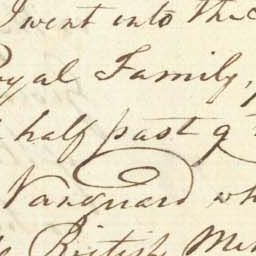 I went into the
Royal Family,
half past 9
Vanguard wh
British Min